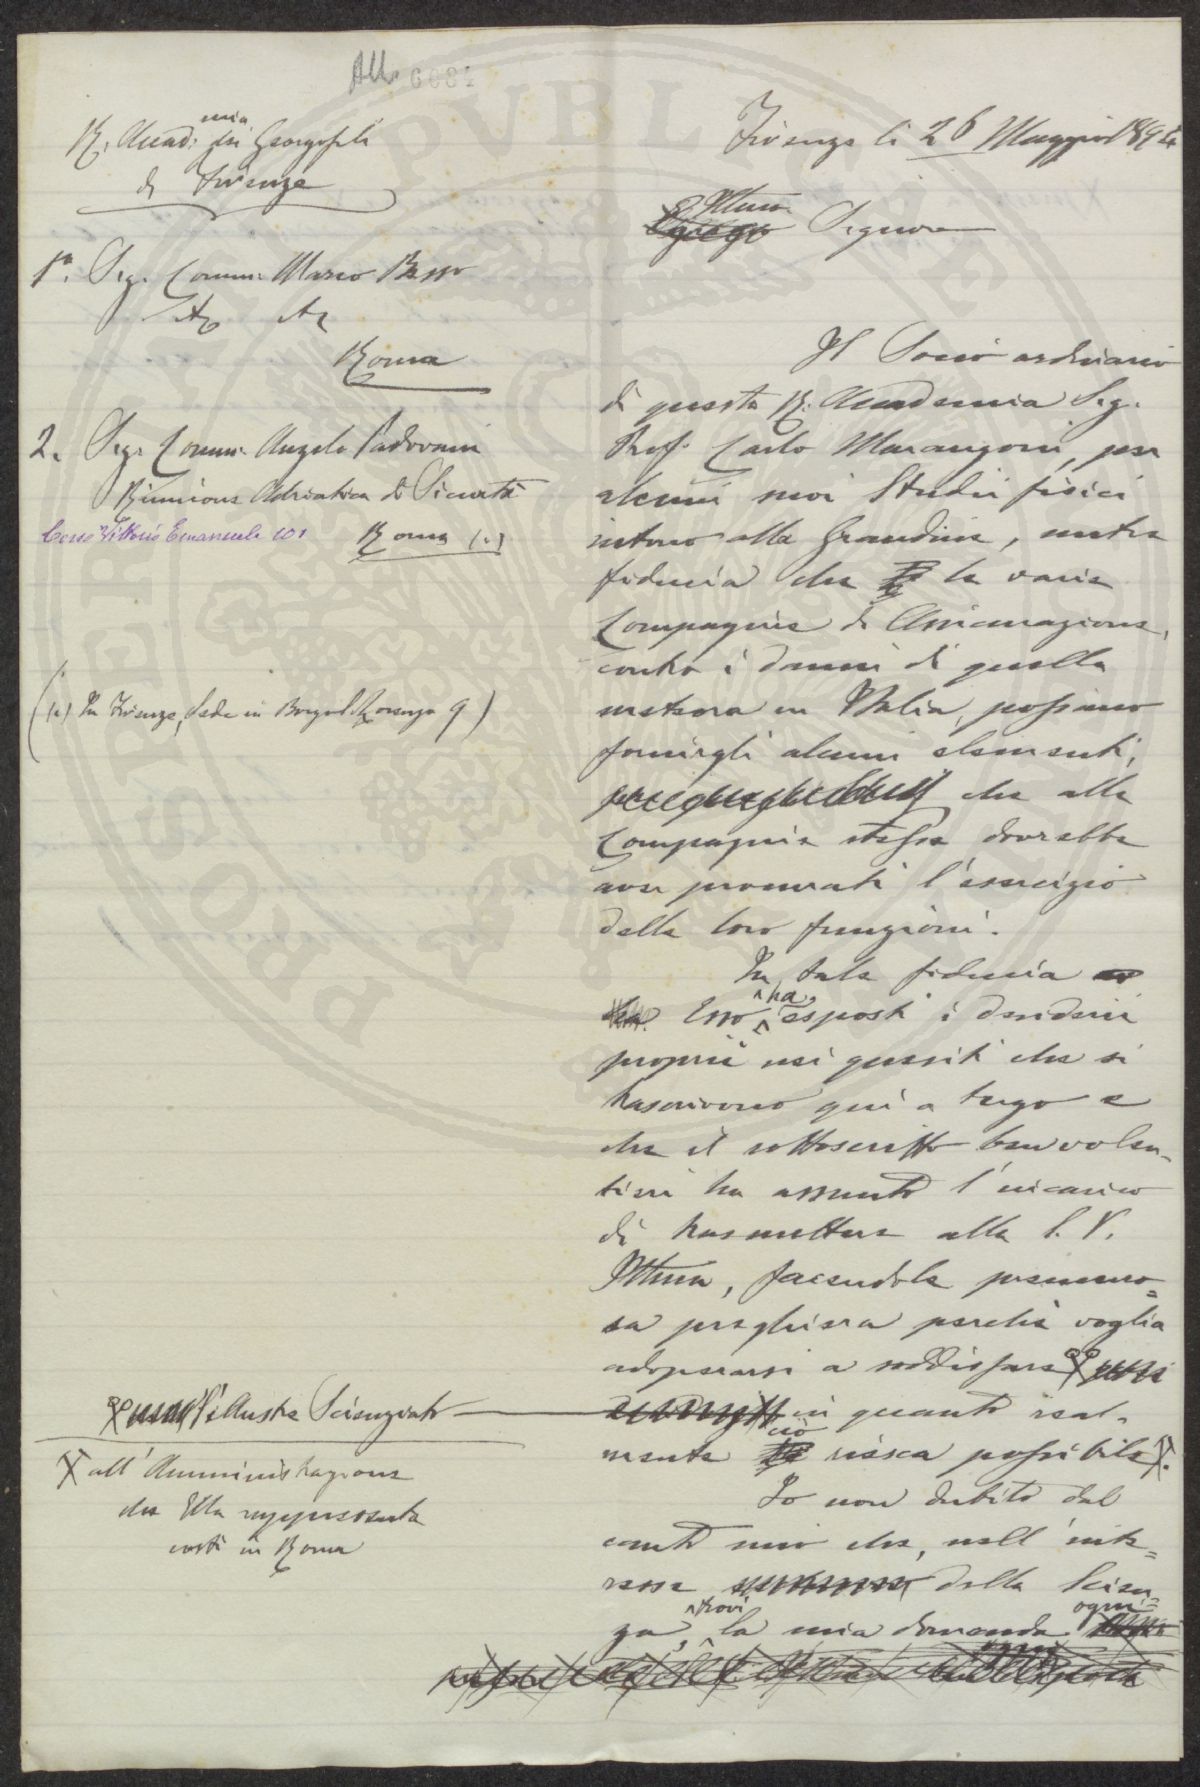 All. 6084
R. Accad:mia dei Georgofili
di Firenze
Firenze li 26 Maggio 1894
Illmo
Egregio Signore
1º. Sig. Comm. Marco Besso
Roma
2. Sig. Comm. Angelo Padovani
Riunione Adriatica di Sicurtà
Corso Vittorio Emanuele 101
Roma (1)
((1) In Firenze, Sede in Borgo S. Lorenzo 9)
Il Socio ordinario
di questa R. Accademia Sig.
Prof. Carlo Marangoni, per
alcuni suoi Studii fisici
intorno alla Grandine, nutre
fiducia che le varie
Compagnie di Assicurazione,
contro i danni di quella
meteora in Italia, possano
fornirgli alcuni elementi,
che alle
Compagnie stesse dovrebbe
aver procurati l'esercizio
delle loro funzioni.
In tale fiducia
Esso ha esposti i desiderii
proprii nei quesiti che si
trascrivono qui a tergo e
che il sottoscritto ben volen-
tieri ha assunto l'incarico
di trasmettere alla S. V.
Illma, facendole premuro=
sa preghiera perchè voglia
adoperarsi a soddisfare
l'illustre Scienziato
in quanto real-
mente ciò riesca possibile X.
X all'Amministrazione
che Ella rappresenta
costì in Roma
Io non dubito dal
canto mio che, nell'inte=
resse della Scien=
za, trovi la mia domanda ogni